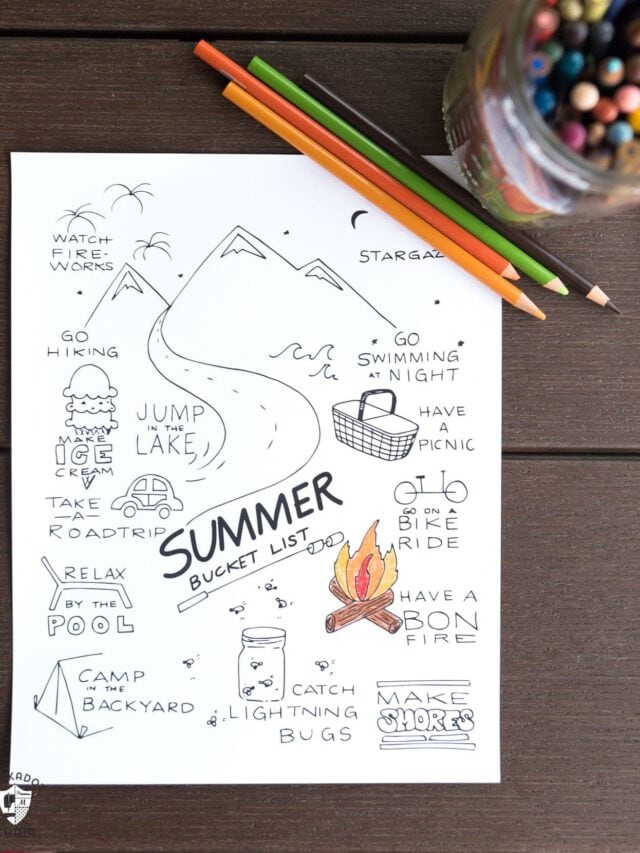 WATCH
FIRE-
WORKS
GO
HIKING
JUMP
IN THE
LAKE
MAKE
ICE
CREAM
TAKE
A
ROADTRIP
SUMMER
BUCKET LIST
GO
SWIMMING
AT NIGHT
HAVE
A
PICNIC
GO ON A
BIKE
RIDE
HAVE A
BON
FIRE
RELAX
BY THE
POOL
CAMP
IN THE
BACKYARD
CATCH
LIGHTNING
BUGS
MAKE
SMORES